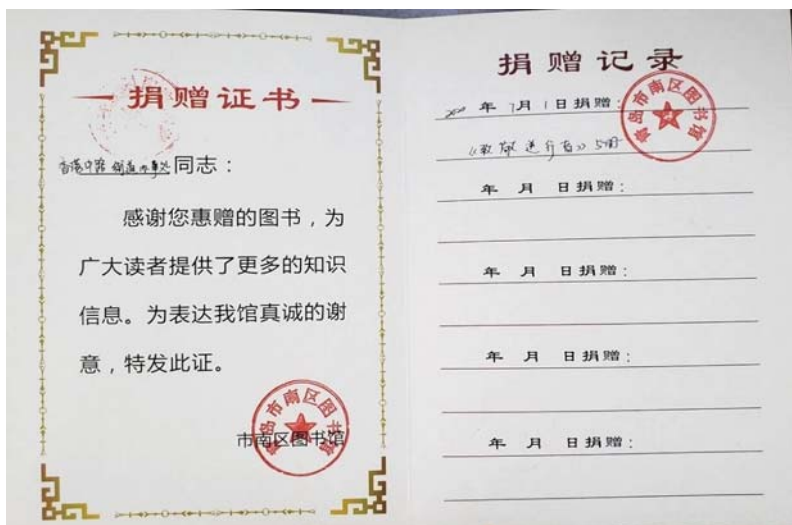 捐赠证书
香港中路街道办事处同志：
感谢您惠赠的图书，为
广大读者提供了更多的知识
信息。为表达我馆真诚的谢
意，特发此证。
市南区图书馆
青岛市南区图书馆
捐赠记录
年7月1日捐赠：
青岛市南区图书馆
逆行者》5册
年 月 日捐赠：
年 月 日捐赠：
年 月 日捐赠：
年 月 日捐赠：